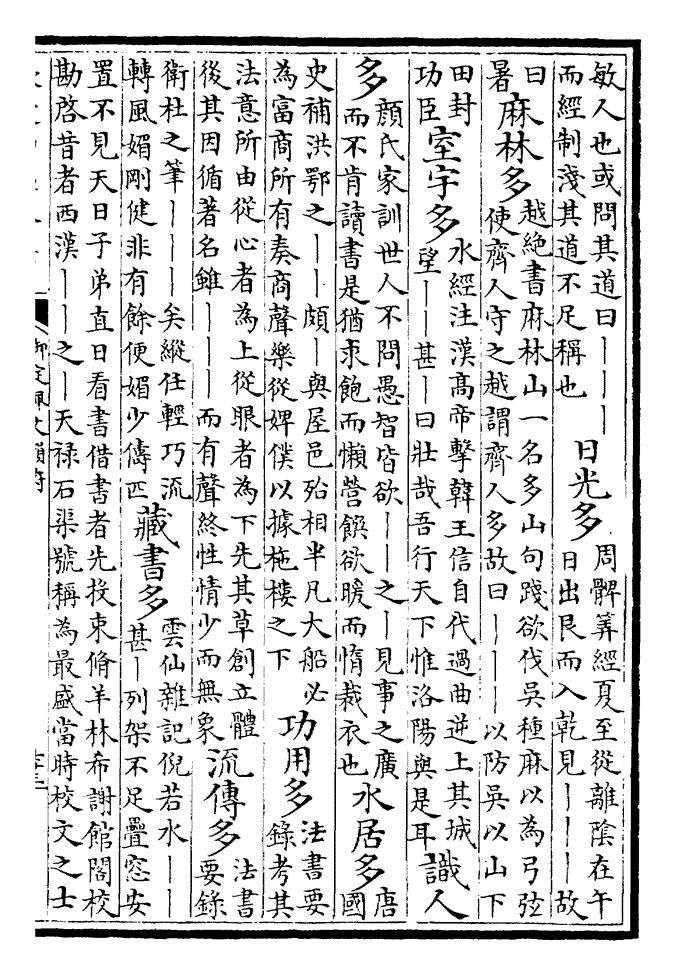 敏人也或問其道曰———
而經制淺其道不足稱也
日光多
周髀筭經夏至從離陰在午
日出艮而入乾見———故
曰
暑
麻林多
越絶書麻林山一名多山句踐欲伐吳種麻以為弓弦
使齊人守之越謂齊人多故曰———以防吳以山下
田封
功臣
室宇多
水經注漢高帝擊韓王信自代過曲逆上其城
望——甚—曰壯哉吾行天下惟洛陽與是耳
識人
多
顔氏家訓世人不問愚智皆欲——之—見事之廣
而不肯讀書是猶求飽而懶營饌欲暖而惰裁衣也
水居多
唐
國
史補洪鄂之——頗—與屋邑殆相半凡大船必
為富商所有奏商聲樂從婢僕以據柂樓之下
功用多
法書要
錄考其
法意所由從心者為上從眼者為下先其草創立體
後其因循著名雖———而有聲終性情少而無象
流傳多
法書
要錄
衛杜之筆———矣縱任輕巧流
轉風媚剛健非有餘便媚少儔匹
藏書多
雲仙雜記倪若水——
甚—列架不足疊窓安
置不見天日子弟直日看書借書者先投束脩羊林希謝館閣校
勘啓昔者西漢——之—天祿石渠號稱為最盛當時校文之士